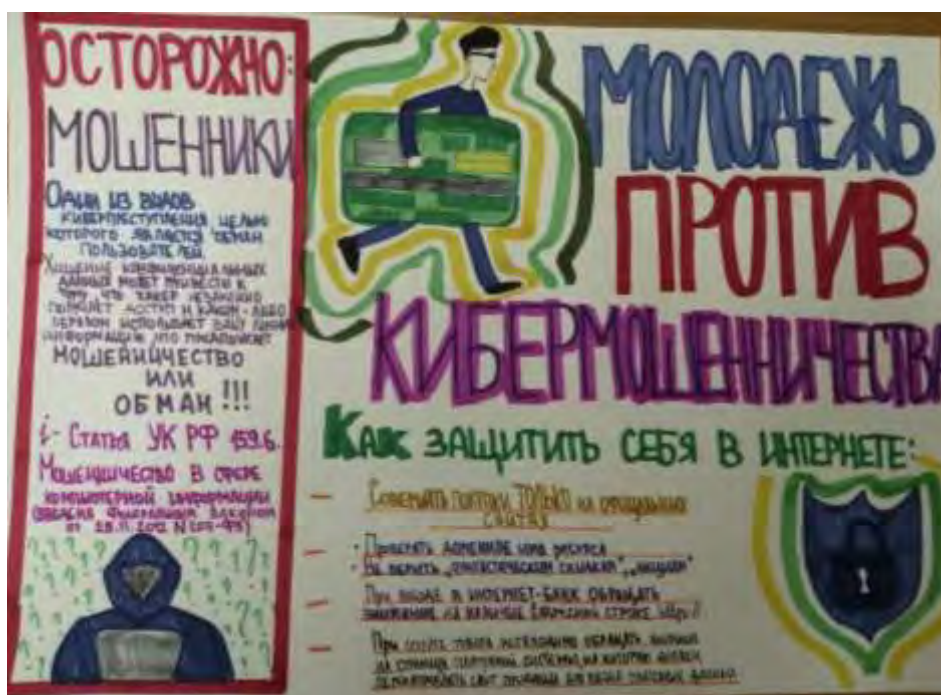 ОСТОРОЖНО:
МОШЕННИКИ
Один из видов
киберпреступления целью
которого является обман
пользователей.
Хищение конфиденциальных
данных может привести к
тому, что хакер незаконно
получает доступ и каким-либо
образом использует вашу
информацию, что
МОШЕННИЧЕСТВО
ИЛИ
ОБМАН !!!
i - Статья УК РФ 159.6.
Мошенничество в сфере
компьютерной информации
(введена Федеральным законом
от 29.11.2012 N 207-ФЗ)
МОЛОДЕЖЬ
ПРОТИВ
КИБЕРМОШЕННИЧЕСТВА
Как защитить себя в интернете:
- Совершать покупки ТОЛЬКО на официальных
сайтах
- • Проверять доменное имя ресурса
• Не верить „фантастическим скидкам", „акциям"
- При входе в интернет-банк обращать
внимание на наличие в адресной строке http://
- При оплате товара необходимо обращать внимание
на страницу платежной системы, на которую должен